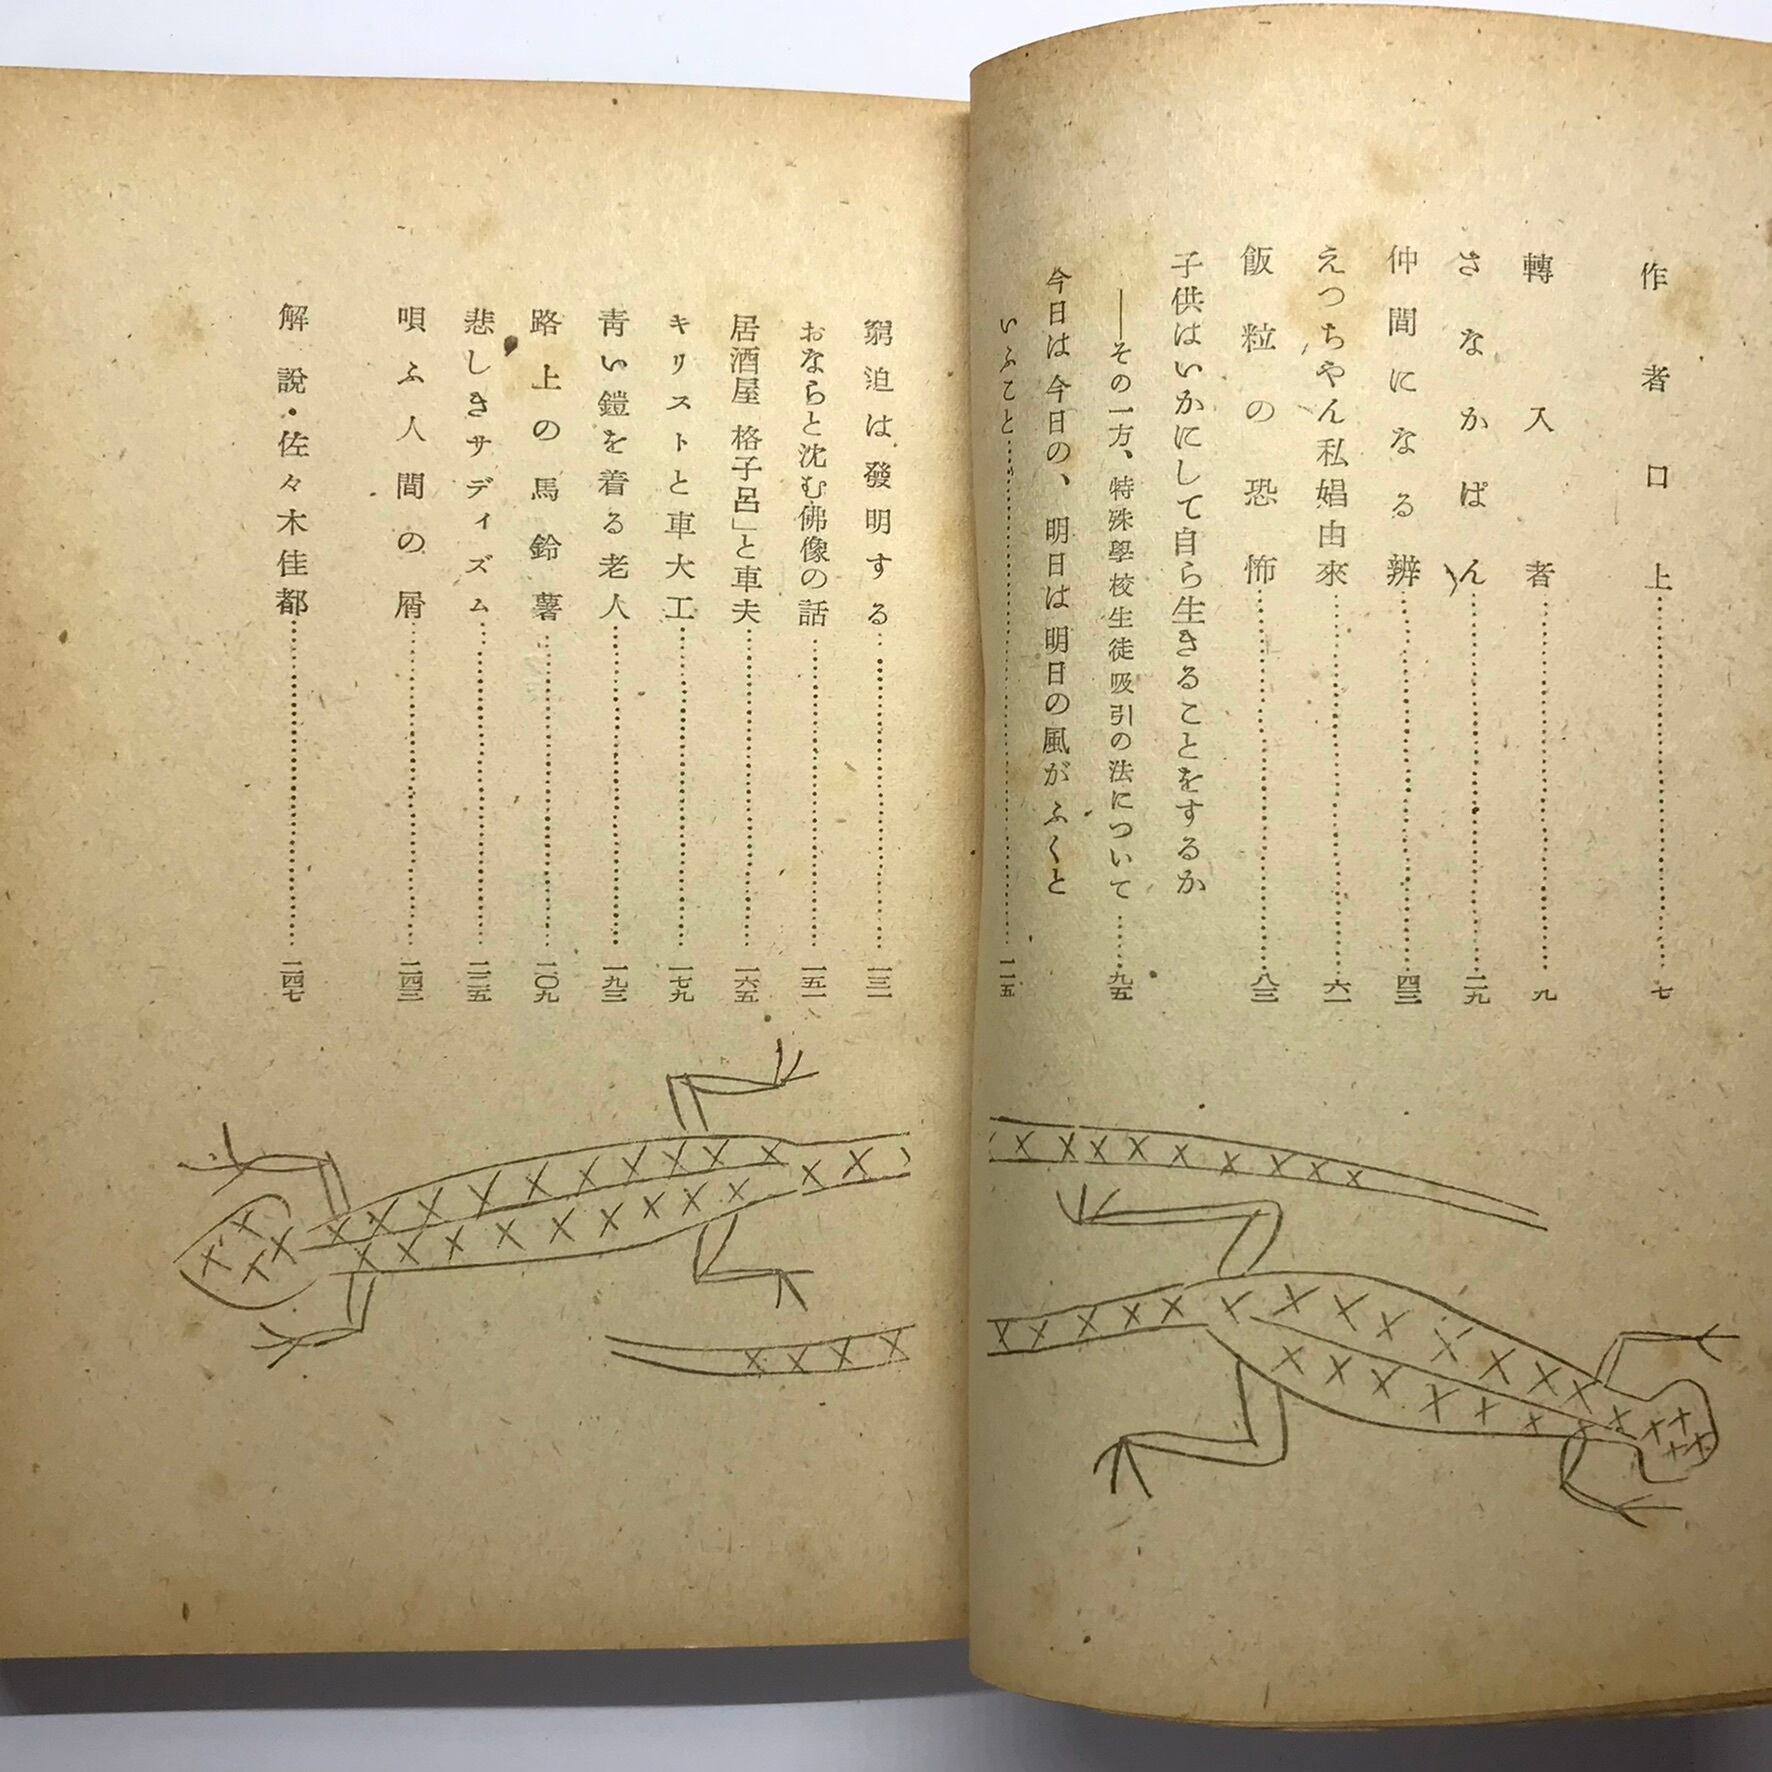 作者口上……七
轉入者……九
さなかぱん……二九
仲間になる辨……四三
えつちやん私娼由來……六一
飯粒の恐怖……八三
子供はいかにして自ら生きることをするか
――その一方、特殊學校生徒吸引の法について……九五
今日は今日の、明日は明日の風がふくと
いふこと……一一五
窮迫は發明する……一三一
おならと沈む佛像の話……一五一
居酒屋「格子呂」と車夫……一六五
キリストと車大工……一七九
靑い鎧を着る老人……一九三
路上の馬鈴薯……二〇九
悲しきサディズム……二二五
唄ふ人間の屑……二四三
解說・佐々木佳都……二四七